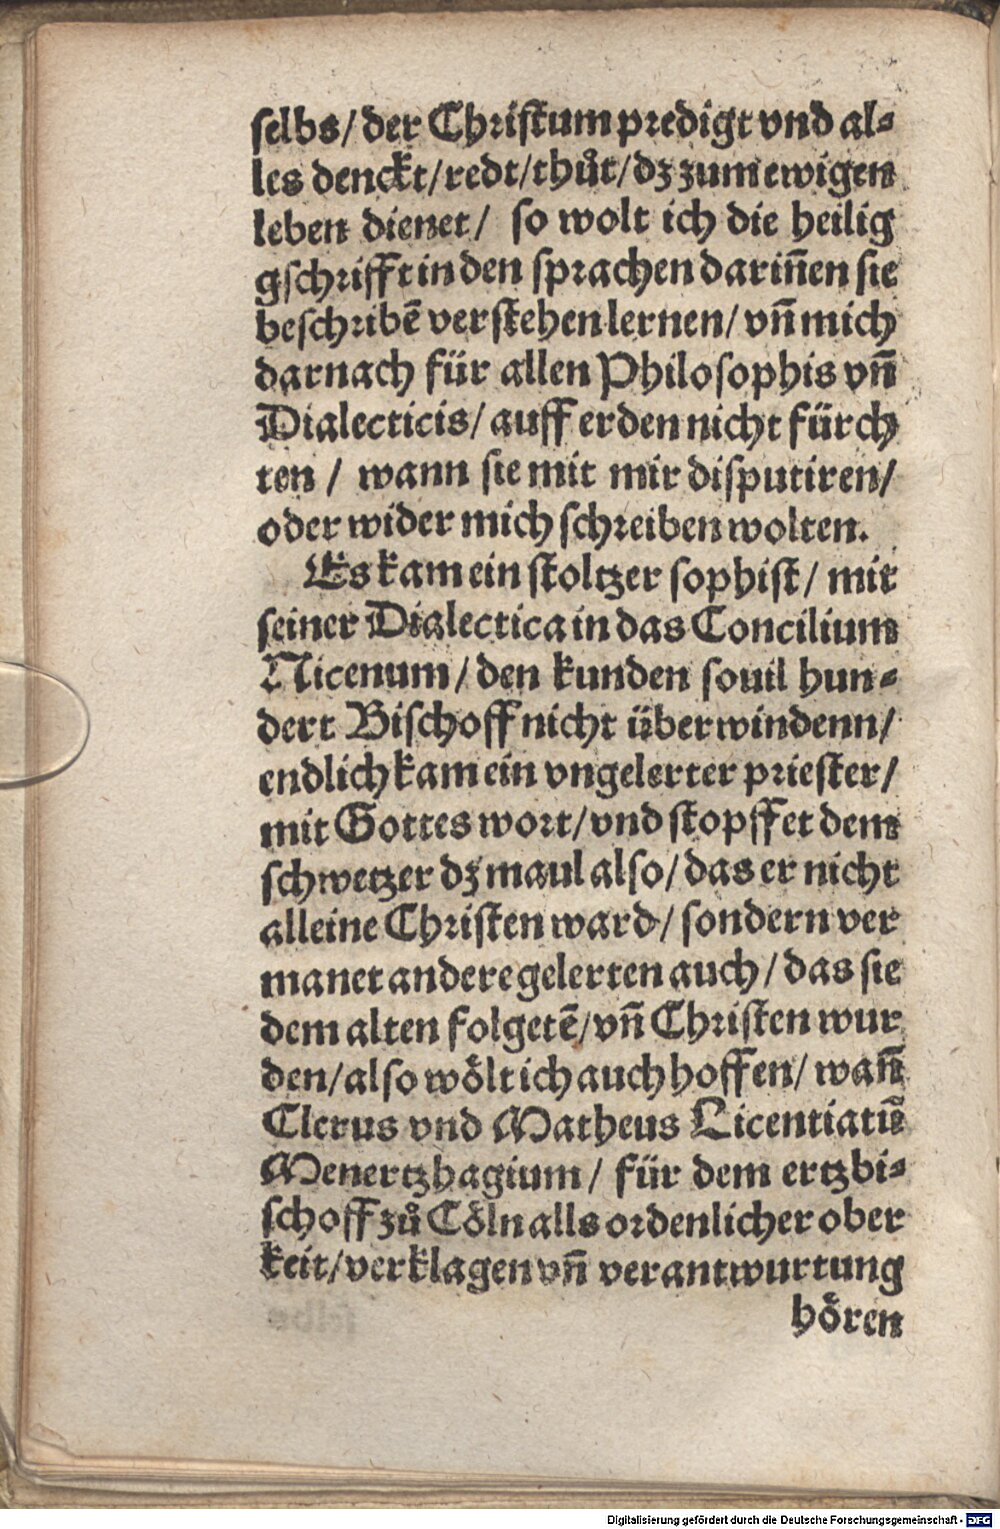 selbs/ der Christum predigt vnd al-
les denckt/ redt/ thůt/ dz zum ewigen
leben dienet/ so wolt ich die heilig
gschrifft in den sprachen dariñen sie
beschribē verstehen lernen/ vñ mich
darnach für allen Philosophis vñ
Dialecticis/ auff erden nicht fürch
ten / wann sie mit mir disputiren/
oder wider mich schreiben wolten.
Es kam ein stoltzer sophist/ mit
seiner Dialectica in das Concilium
Nicenum/ den kunden souil hun-
dert Bischoff nicht überwindenn/
endlich kam ein vngelerter priester/
mit Gottes wort/ vnd stopffet dem
schwetzer dz maul also/ das er nicht
alleine Christen ward/ sondern ver
manet andere gelerten auch/ das sie
dem alten folgetē/ vñ Christen wur
den/ also wölt ich auch hoffen/ wañ
Clerus vnd Matheus Licentiatū
Menertzhagium/ für dem ertzbi-
schoff zů Cöln alls ordenlicher ober
keit/ verklagen vñ verantwurtung
hören
Digitalisierung gefördert durch die Deutsche Forschungsgemeinschaft - DFG